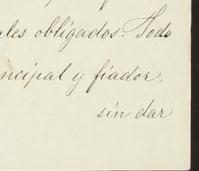 ales obligados. Todo
ncipal y fiador,
sin dar